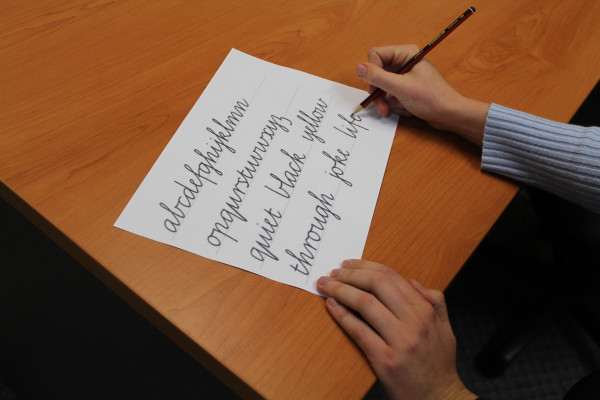 abcdefghijklmn
opqurstuvwxyz
quiet black yellow
through joke life